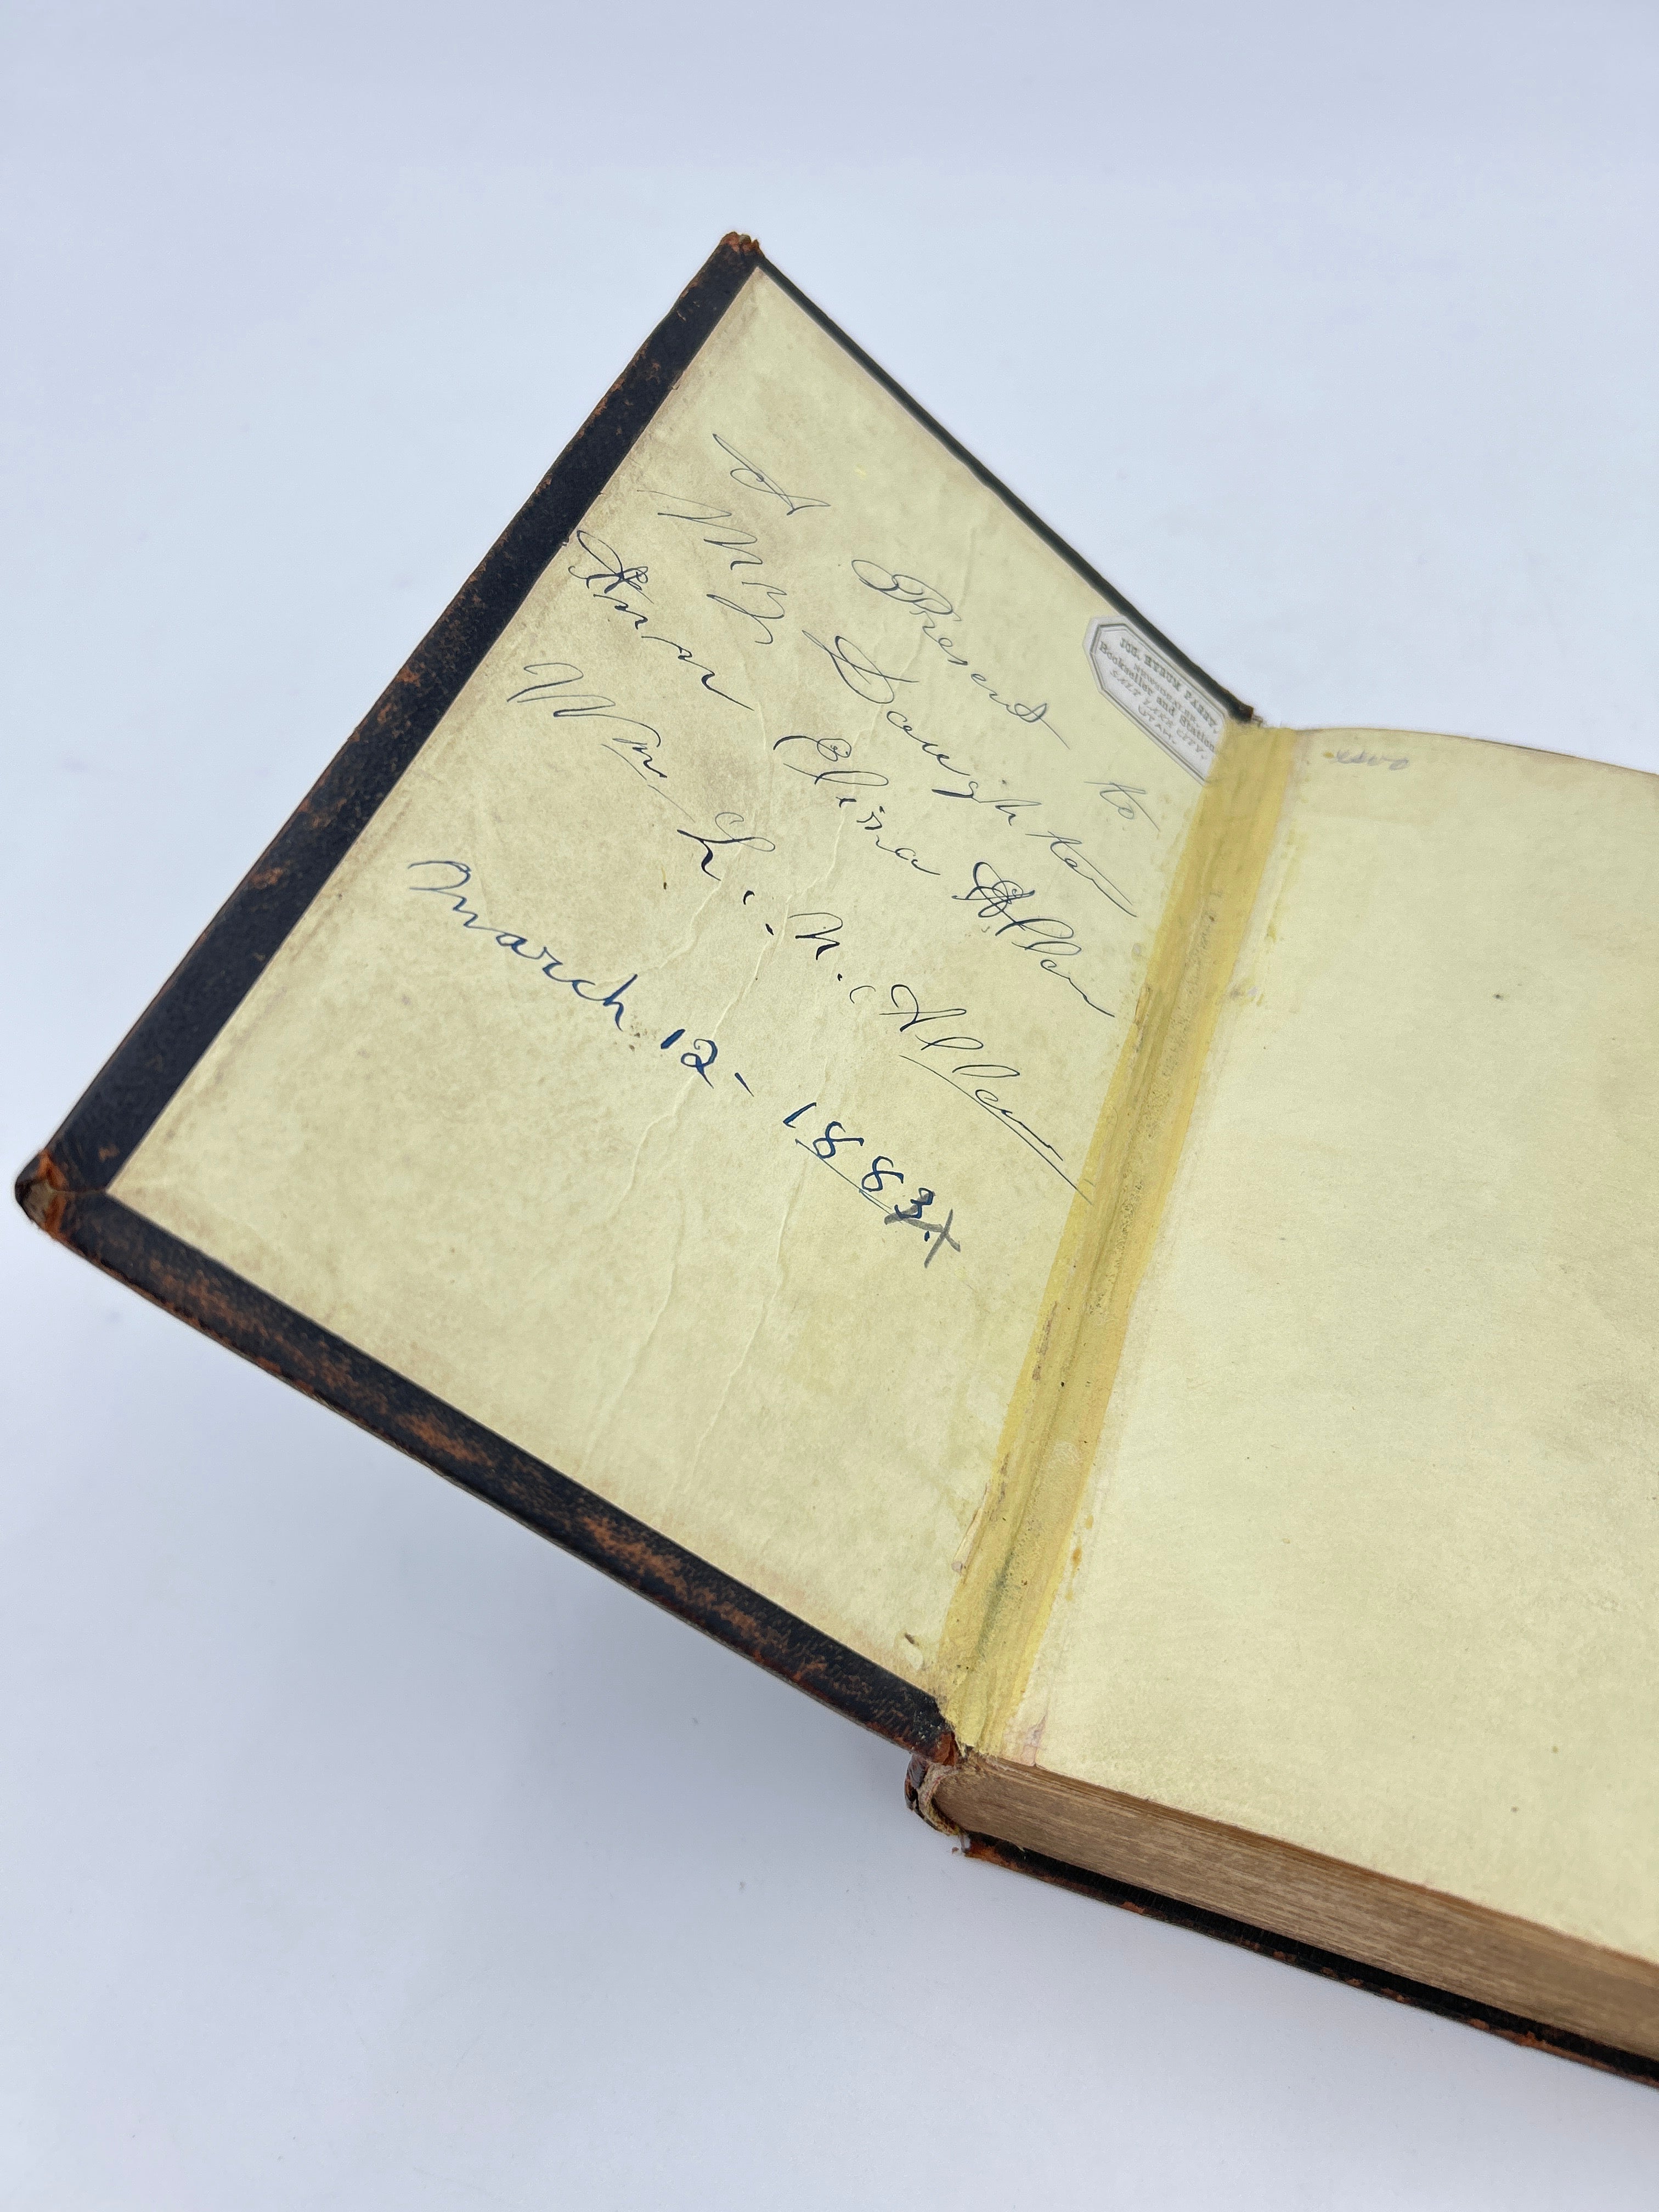 A Present to
My Daughter
Ann Elina Allen
Wm L. N. Allen
March 12- 1883
JOS. HYRUM PARRY,
Bookseller and Station
SALT LAKE CITY,
UTAH.